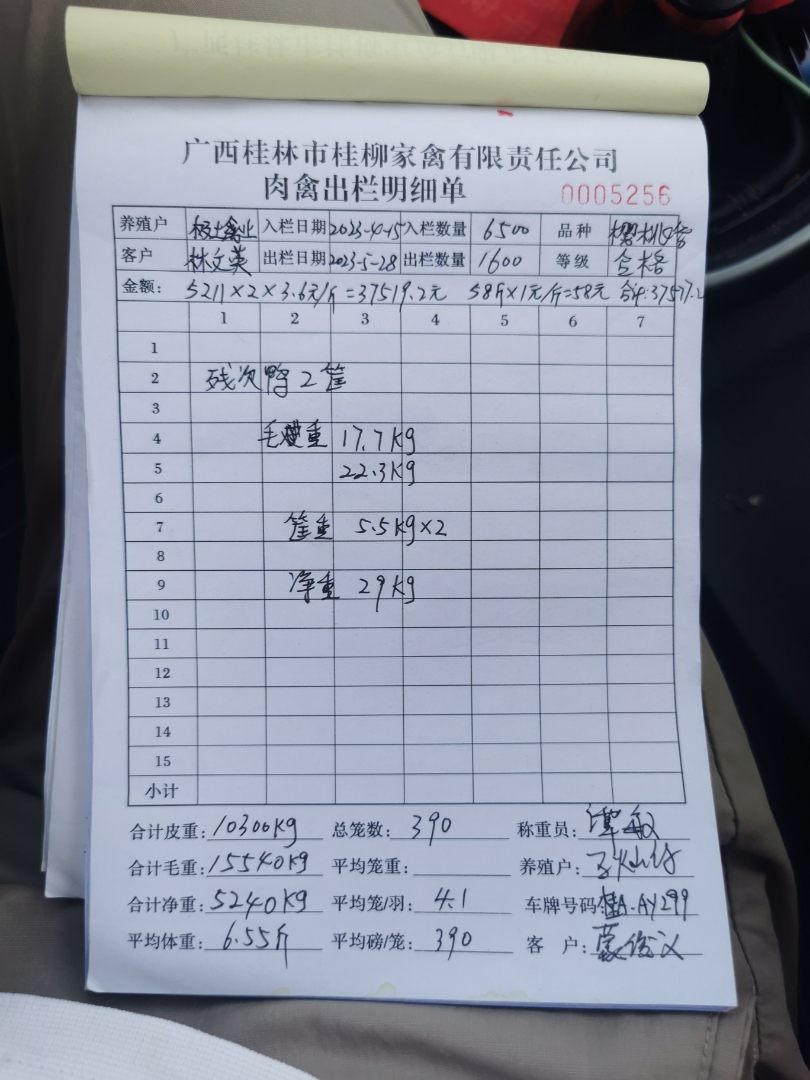 广西桂林市桂柳家禽有限责任公司
肉禽出栏明细单 0005256
养殖户 禽业 入栏日期 2023-4-15 入栏数量 6500 品种 樱桃谷
客户 林文英 出栏日期 2023-5-28 出栏数量 1600 等级 合格
金额: 5211×2×3.6元/斤=37519.2元 58斤×1元/斤=58元 合计:37577.2
1 2 3 4 5 6 7
1
2 残次鸭2筐
3
4 毛重 17.7kg
5 22.3kg
6
7 筐重 5.5kg×2
8
9 净重 29kg
10
11
12
13
14
15
小计
合计皮重: 10300kg 总笼数: 390 称重员: 谭敏
合计毛重: 15540kg 平均笼重: 养殖户:
合计净重: 5240kg 平均笼/羽: 4.1 车牌号码: 桂A·AY299
平均体重: 6.55斤 平均磅/笼: 390 客 户: